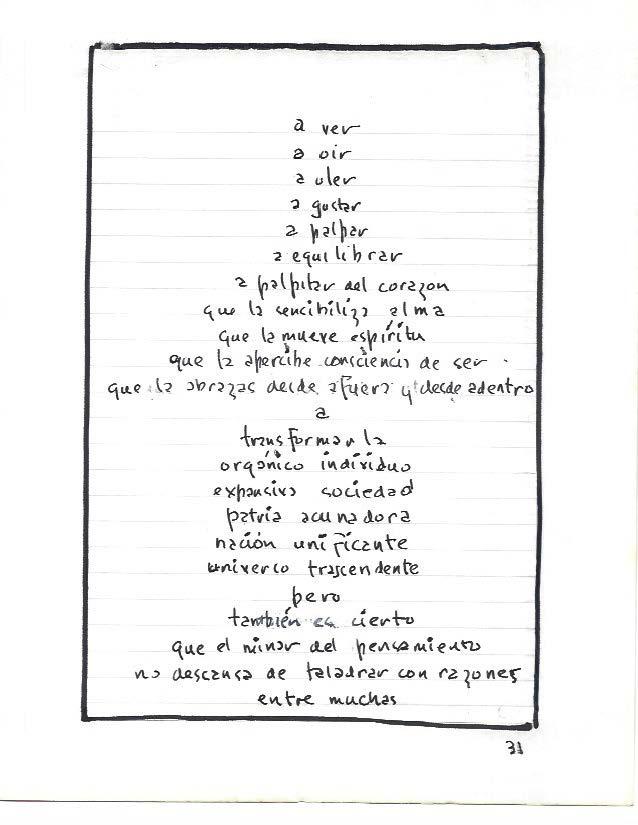 a ver
a oir
a oler
a gustar
a palpar
a equilibrar
a palpitar del corazon
que la sencibiliza alma
que la mueve espíritu
que la apercibe consciencia de ser
que la abrazas desde afuera y desde adentro
a
transformar la
orgánico individuo
expansiva sociedad
patria acunadora
nación unificante
univerco trascendente
pero
también es cierto
que el minar del pensamiento
no descansa de taladrar con razones
entre muchas
31